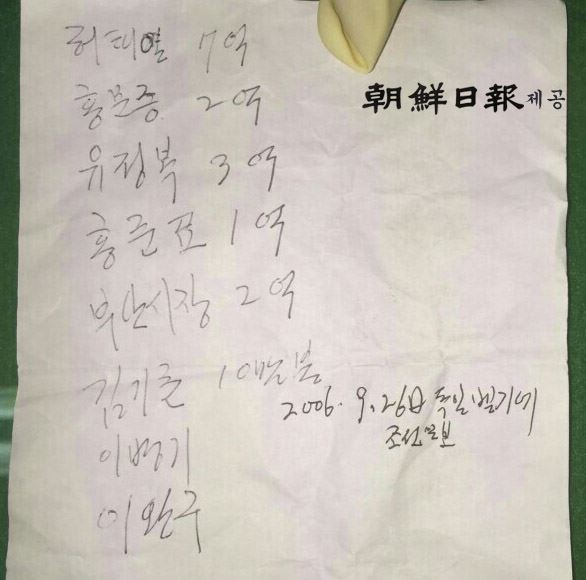 허태열 7억
홍문종 2억
유정복 3억
홍준표 1억
부산시장 2억
김기춘 10만불
2006. 9. 26日 독일 벨기에
조선일보
이병기
이완구
朝鮮日報 제공